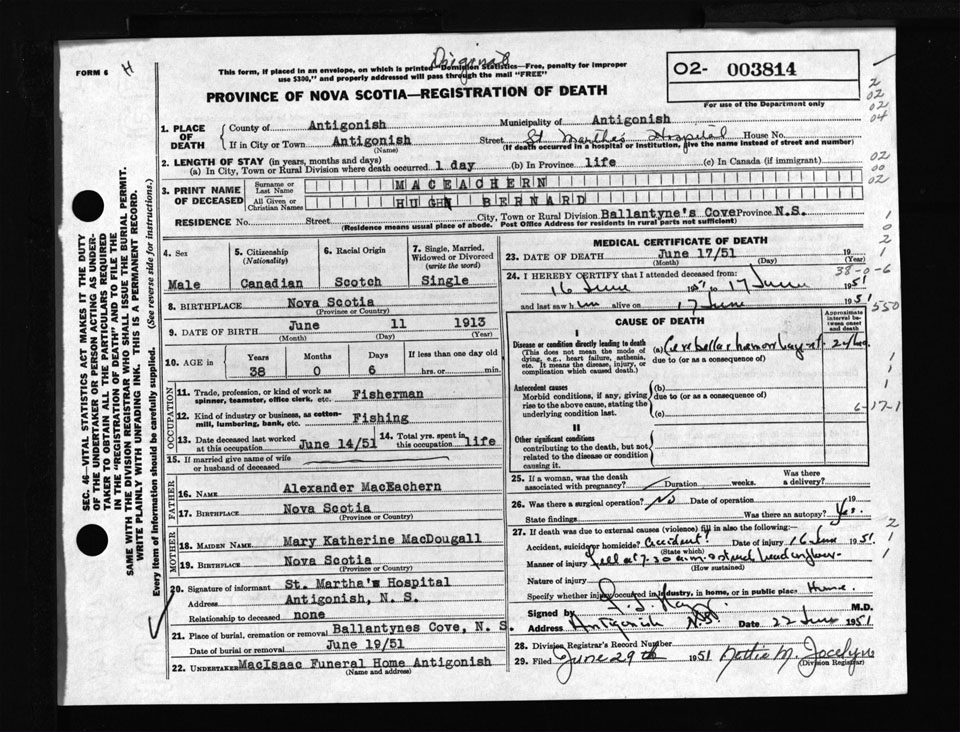 FORM 6
H
Original
This form, if placed in an envelope, on which is printed "Dominion Statistics—Free, penalty for improper
use $300," and properly addressed will pass through the mail "FREE"
PROVINCE OF NOVA SCOTIA—REGISTRATION OF DEATH
02- 003814
For use of the Department only
2
02
02
04
1. PLACE OF DEATH
County of Antigonish Municipality of Antigonish
If in City or Town Antigonish Street St Martha's Hospital House No.
(Name) (If death occurred in a hospital or institution, give the name instead of street and number)
2. LENGTH OF STAY (in years, months and days)
(a) In City, Town or Rural Division where death occurred 1 day (b) In Province life (c) In Canada (if immigrant)
02
00
02
3. PRINT NAME OF DECEASED
Surname or Last Name MACEACHERN
All Given or Christian Names HUGH BERNARD
RESIDENCE No. Street City, Town or Rural Division Ballantyne's Cove Province N.S.
(Residence means usual place of abode. Post Office Address for residents in rural parts not sufficient)
1
0
2
1
SEC. 46—VITAL STATISTICS ACT MAKES IT THE DUTY
OF THE UNDERTAKER OR PERSON ACTING AS UNDER-
TAKER TO OBTAIN ALL THE PARTICULARS REQUIRED
IN THE "REGISTRATION OF DEATH" AND TO FILE THE
SAME WITH THE DIVISION REGISTRAR WHO SHALL ISSUE THE BURIAL PERMIT.
WRITE PLAINLY WITH UNFADING INK. THIS IS A PERMANENT RECORD.
Every item of information should be carefully supplied. (See reverse side for instructions.)
4. Sex
Male
5. Citizenship
(Nationality)
Canadian
6. Racial Origin
Scotch
7. Single, Married, Widowed or Divorced
(write the word)
Single
8. BIRTHPLACE Nova Scotia
(Province or Country)
9. DATE OF BIRTH June 11 1913
(Month) (Day) (Year)
10. AGE in
Years Months Days If less than one day old
38 0 6 hrs. or min.
OCCUPATION
11. Trade, profession, or kind of work as
spinner, teamster, office clerk, etc. Fisherman
12. Kind of industry or business, as cotton-
mill, lumbering, bank, etc. Fishing
13. Date deceased last worked
at this occupation June 14/51
14. Total yrs. spent in
this occupation life
15. If married give name of wife
or husband of deceased
FATHER
16. NAME Alexander MacEachern
17. BIRTHPLACE Nova Scotia
(Province or Country)
MOTHER
18. MAIDEN NAME Mary Katherine MacDougall
19. BIRTHPLACE Nova Scotia
(Province or Country)
20. Signature of informant St. Martha's Hospital
Address Antigonish, N. S.
Relationship to deceased none
21. Place of burial, cremation or removal Ballantynes Cove, N. S.
Date of burial or removal June 19/51
22. UNDERTAKER MacIsaac Funeral Home Antigonish
(Name and address)
MEDICAL CERTIFICATE OF DEATH
23. DATE OF DEATH June 17/51 19
(Month) (Day) (Year)
38-0-6
24. I HEREBY CERTIFY that I attended deceased from:
16 June 1951 to 17 June 1951
and last saw him alive on 17 June 1951
550
CAUSE OF DEATH
Approximate interval between onset and death
I
Disease or condition directly leading to death
(This does not mean the mode of
dying, e.g., heart failure, asthenia,
etc. It means the disease, injury, or
complication which caused death.)
(a) Cerebellar hemorrhage
due to (or as a consequence of)
Antecedent causes
Morbid conditions, if any, giving
rise to the above cause, stating the
underlying condition last.
(b)
due to (or as a consequence of)
(c)
6-17-1
II
Other significant conditions
contributing to the death, but not
related to the disease or condition
causing it.
25. If a woman, was the death
associated with pregnancy? Duration weeks. Was there a delivery?
26. Was there a surgical operation? No Date of operation 19
State findings Was there an autopsy? Yes
27. If death was due to external causes (violence) fill in also the following:—
Accident, suicide or homicide? Accident Date of injury 16 June 1951
(State which)
Manner of injury Fell at 7.30 a.m. & struck head on floor
(How sustained)
Nature of injury
Specify whether injury occurred in industry, in home, or in public place Home
Signed by M.D.
Address Antigonish N.S. Date 22 June 1951
28. Division Registrar's Record Number
29. Filed June 29th 1951 Dottie M. Jocelyn
(Division Registrar)